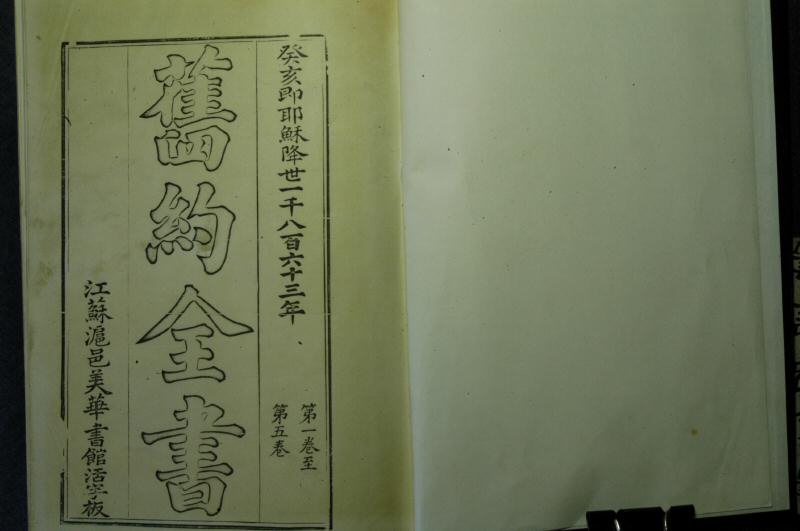 癸亥即耶穌降世一千八百六十三年
第一卷至
第五卷
舊約全書
江蘇滬邑美華書館活字板